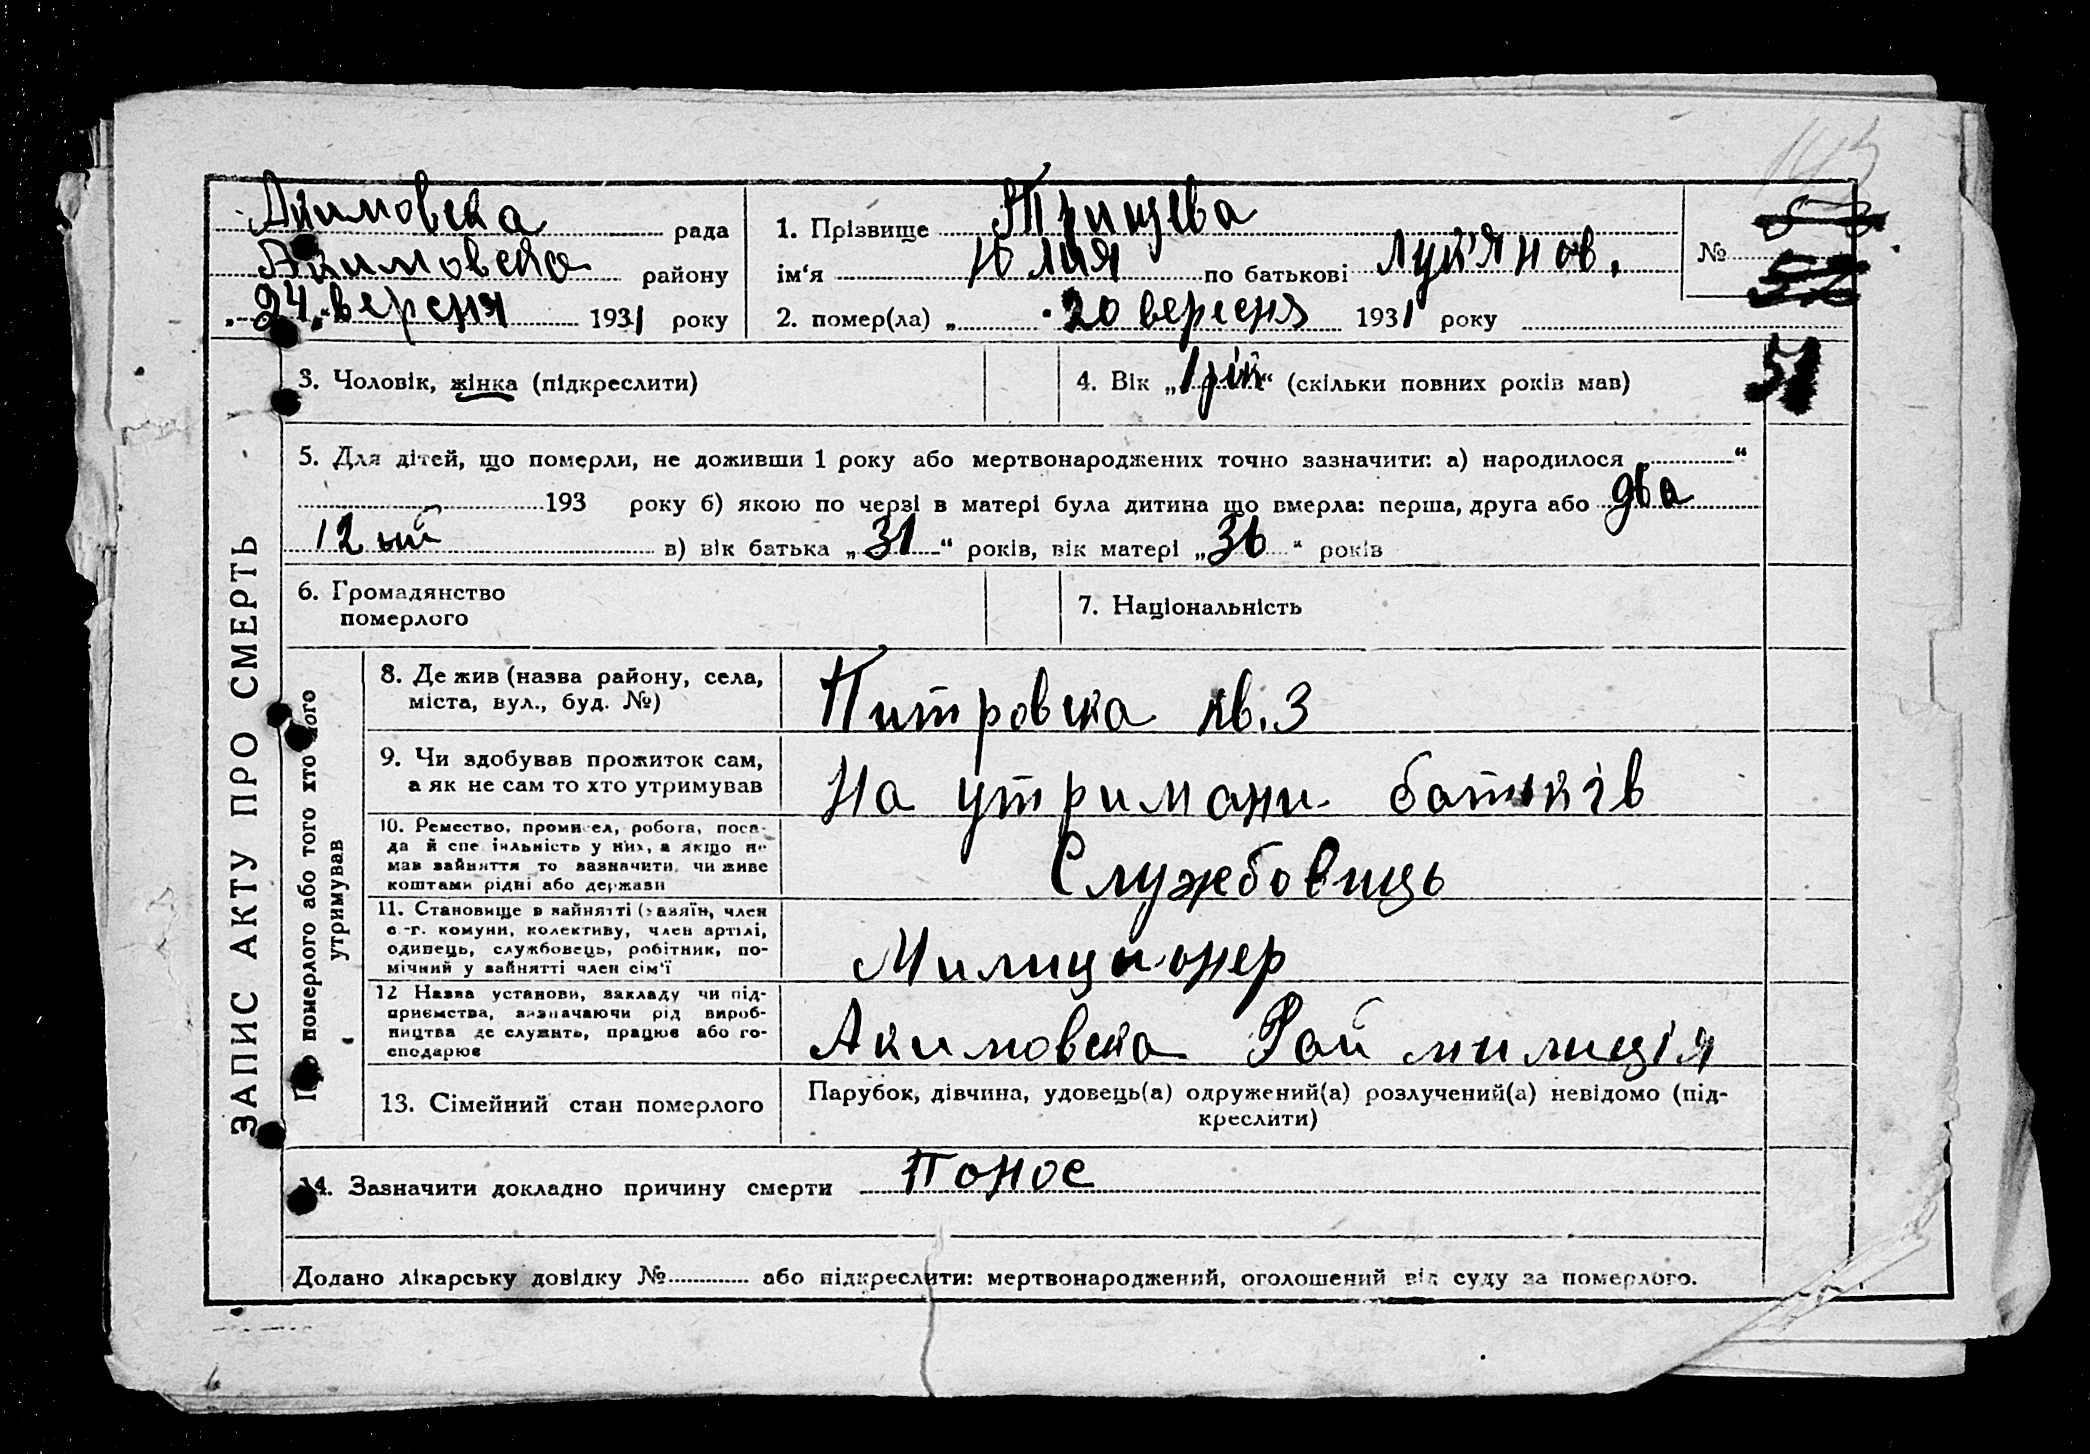 193
Акимовска рада
Акимовско району
„24„ вересня 1931 року
1. Прізвище Трищева
ім‘я Юлия по батькові Лук'янов.
2. помер(ла) „ 20 вересня 1931 року
№ 53
52
51
ЗАПИС АКТУ ПРО СМЕРТЬ
3. Чоловік, жінка (підкреслити)
4. Вік „1 рік“ (скільки повних років мав)
5. Для дітей, що померли, не доживши 1 року або мертвонароджених точно зазначити: а) народилося „ “
193 року б) якою по черзі в матері була дитина що вмерла: перша, друга або два
12 ый в) вік батька „31“ років, вік матері „36“ років
6. Громадянство
померлого
7. Національність
померлого або того хто його
утримував
8. Де жив (назва району, села,
міста, вул., буд. №)
Питровска кв. 3
9. Чи здобував прожиток сам,
а як не сам то хто утримував
На утримани батьків
10. Ремество, промисел, робота, поса-
да й спеціяльність у них, а якщо не
мав зайняття то зазначити, чи живе
коштами рідні або держави
Службовиць
11. Становище в зайнятті (хазяїн, член
с.-г. комуни, колективу, член артілі,
одинець, службовець, робітник, по-
мічний у зайнятті член сім‘ї
Милиционер
12 Назва установи, закладу чи під-
приємства, зазначаючи рід вироб-
ництва де служить, працює або го-
сподарює
Акимовска Рай милиція
13. Сімейний стан померлого
Парубок, дівчина, удовець(а) одружений(а) розлучений(а) невідомо (під-
креслити)
14. Зазначити докладно причину смерти Понос
Додано лікарську довідку № або підкреслити: мертвонароджений, оголошений від суду за померлого.